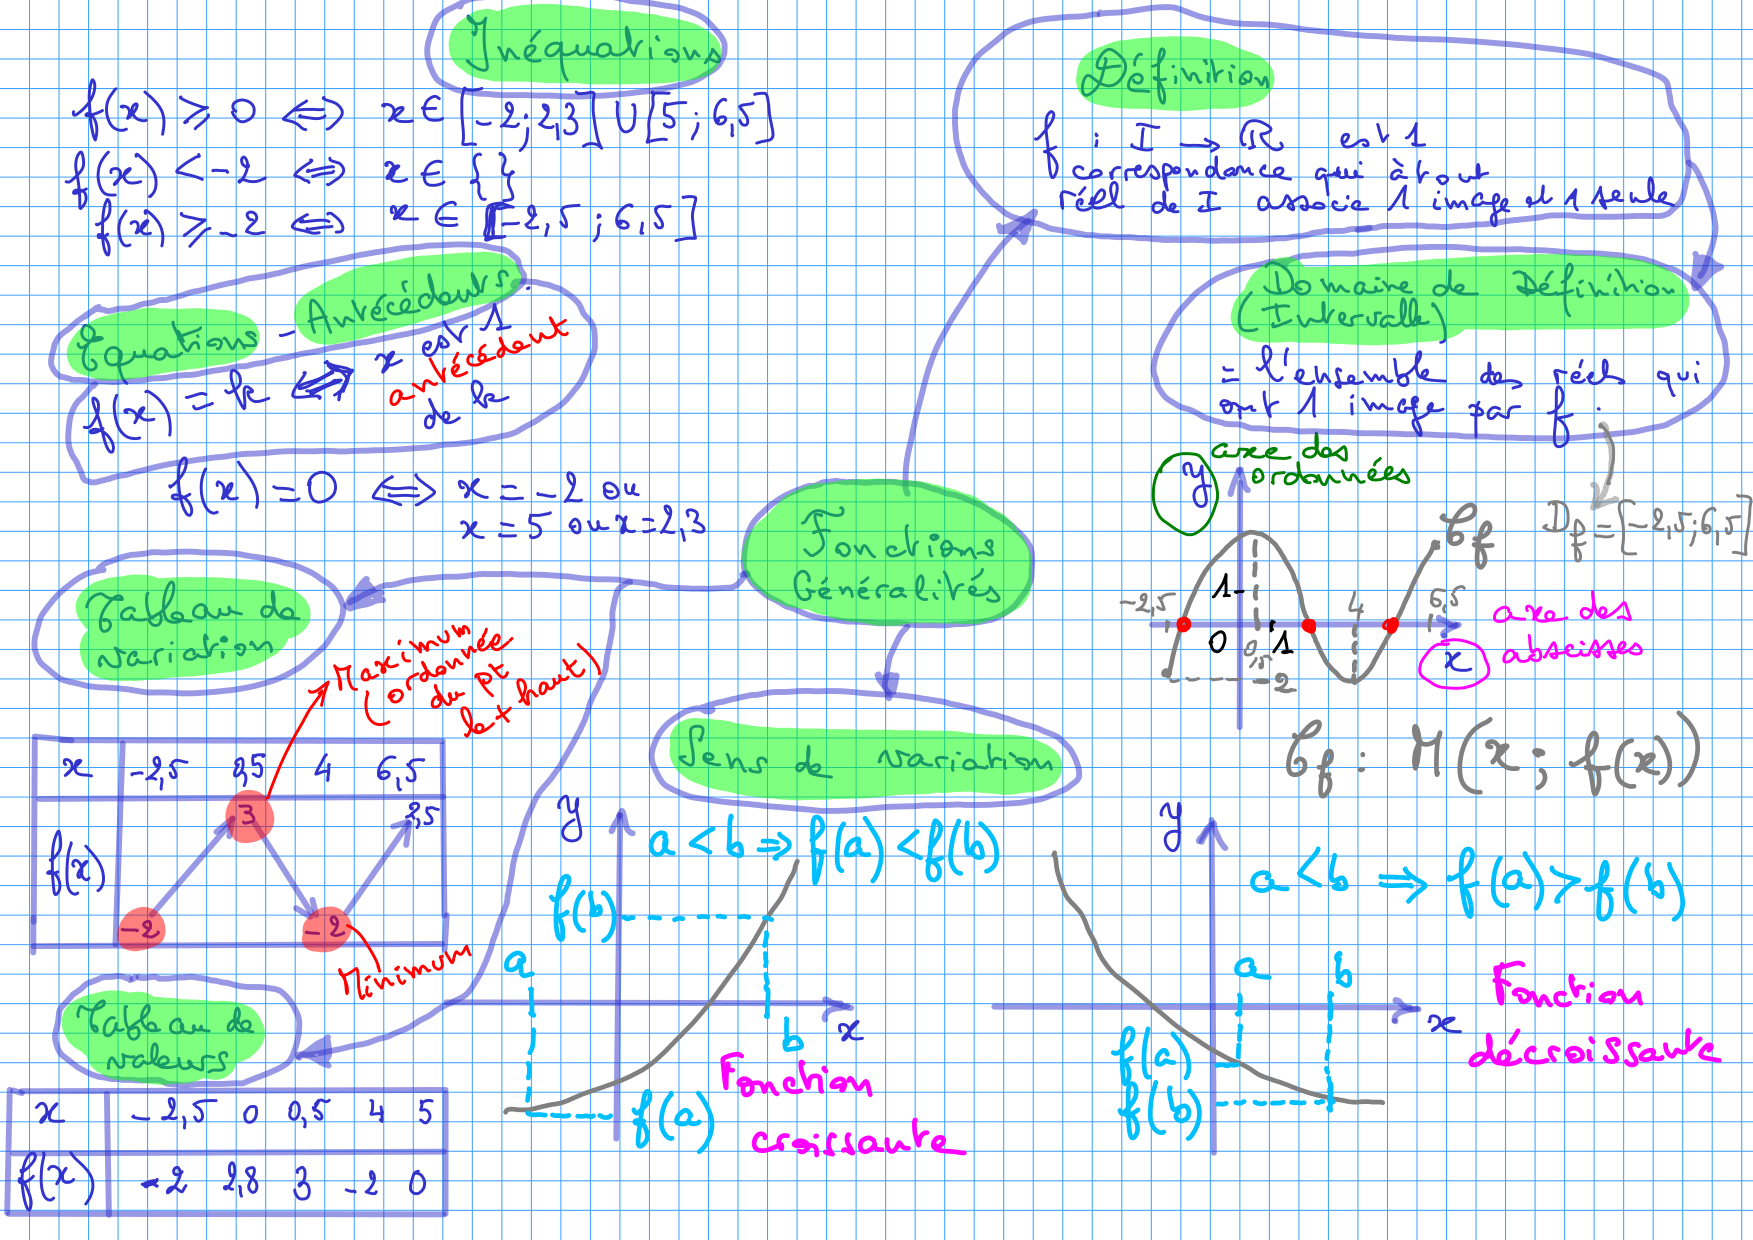 Inéquations
f(x) ⩾ 0 ⟺ x ∈ [-2;2,3] U [5 ; 6,5]
f(x) < -2 ⟺ x ∈ { }
f(x) ⩾ -2 ⟺ x ∈ [-2,5 ; 6,5]
Définition
f : I → ℝ est 1
correspondance qui à tout
réel de I associe 1 image et 1 seule
Domaine de Définition
(Intervalle)
= l'ensemble des réels qui
ont 1 image par f.
Equations - Antécédents.
f(x) = k ⟺ x est 1
antécédent
de k
f(x) = 0 ⟺ x = -2 ou
x = 5 ou x = 2,3
Fonctions
Généralités
y
axe des
ordonnées
Cf
Df = [-2,5;6,5]
-2,5
1
4
6,5
0
0,5
1
-2
x
axe des
abscisses
Cf : M(x ; f(x))
Tableau de
variation
Maximum
(ordonnée
du pt
le + haut)
x -2,5 0,5 4 6,5
f(x)
3
-2
-2
Minimum
Sens de variation
y
a < b ⇒ f(a) < f(b)
f(b)
a
b
x
f(a)
Fonction
croissante
y
a < b ⇒ f(a) > f(b)
a
b
x
f(a)
f(b)
Fonction
décroissante
Tableau de
valeurs
x -2,5 0 0,5 4 5
f(x) -2 2,8 3 -2 0